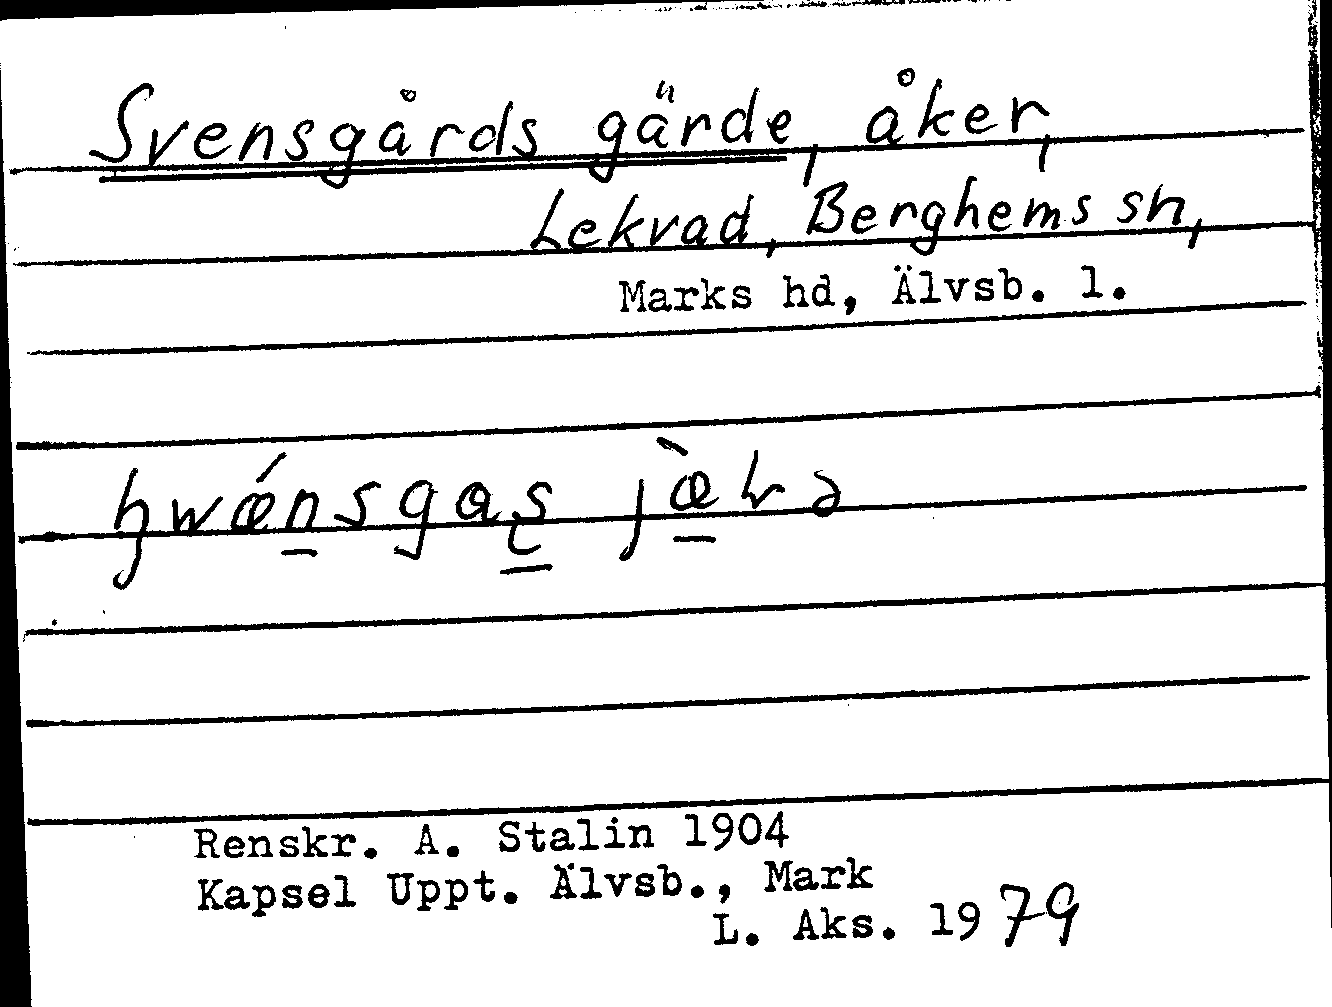 Svensgårds gärde, åker,
Lekvad, Berghems sn,
Marks hd, Älvsb. l.
Renskr. A. Stalin 1904
Kapsel Uppt. Älvsb., Mark
L. Aks. 1979